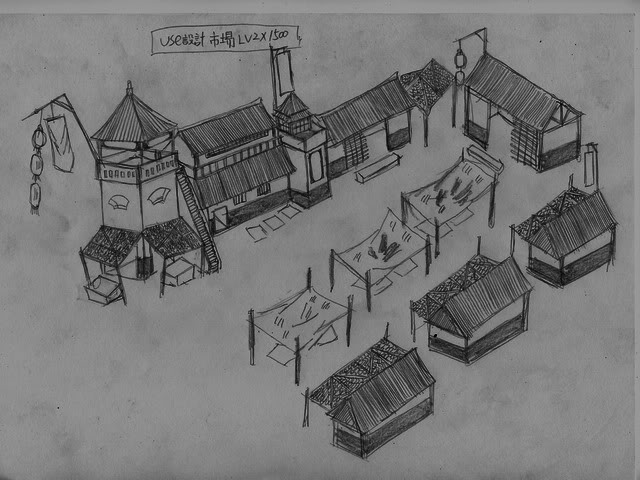 USE設計 市場 LV2X1500